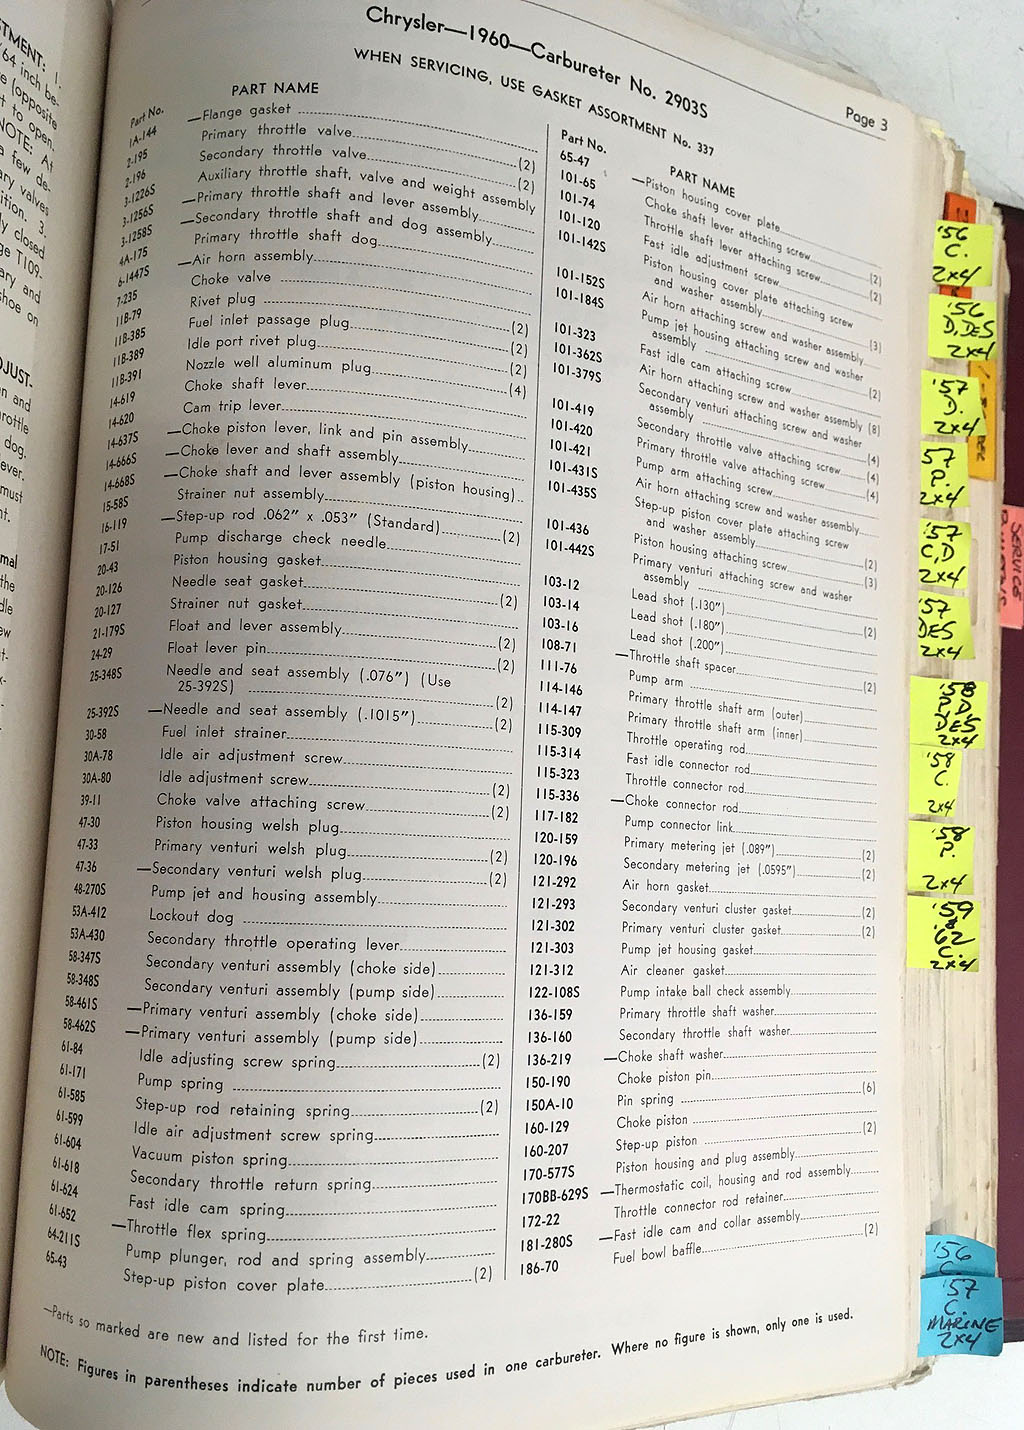 TMENT: 1.
64 inch be-
e (opposite
t to open.
NOTE: At
a few de-
ary valves
ition. 3.
ly closed
ge T109-
ary and
shoe on
DJUST-
en and
rottle
dog.
ever.
must
nt.
mal
the
dle
ew
Chrysler—1960—Carbureter No. 2903S
Page 3
WHEN SERVICING, USE GASKET ASSORTMENT No. 337
Part No. PART NAME
1A-144 —Flange gasket
2-195 Primary throttle valve (2)
2-196 Secondary throttle valve (2)
3-1226S Auxiliary throttle shaft, valve and weight assembly
3-1256S —Primary throttle shaft and lever assembly
3-1258S —Secondary throttle shaft and dog assembly
4A-175 Primary throttle shaft dog
6-1447S —Air horn assembly
7-235 Choke valve
11B-79 Rivet plug (2)
11B-385 Fuel inlet passage plug (2)
11B-389 Idle port rivet plug (2)
11B-391 Nozzle well aluminum plug (4)
14-619 Choke shaft lever
14-620 Cam trip lever
14-637S —Choke piston lever, link and pin assembly
14-666S —Choke lever and shaft assembly
14-668S —Choke shaft and lever assembly (piston housing)
15-58S Strainer nut assembly
16-119 —Step-up rod .062″ x .053″ (Standard) (2)
17-51 Pump discharge check needle
20-43 Piston housing gasket
20-126 Needle seat gasket (2)
20-127 Strainer nut gasket
21-179S Float and lever assembly (2)
24-29 Float lever pin (2)
25-348S Needle and seat assembly (.076″) (Use
25-392S) (2)
25-392S —Needle and seat assembly (.1015″) (2)
30-58 Fuel inlet strainer
30A-78 Idle air adjustment screw
30A-80 Idle adjustment screw (2)
39-11 Choke valve attaching screw (2)
47-30 Piston housing welsh plug
47-33 Primary venturi welsh plug (2)
47-36 —Secondary venturi welsh plug (2)
48-270S Pump jet and housing assembly
53A-412 Lockout dog
53A-430 Secondary throttle operating lever
58-347S Secondary venturi assembly (choke side)
58-348S Secondary venturi assembly (pump side)
58-461S —Primary venturi assembly (choke side)
58-462S —Primary venturi assembly (pump side)
61-84 Idle adjusting screw spring (2)
61-171 Pump spring
61-585 Step-up rod retaining spring (2)
61-599 Idle air adjustment screw spring
61-604 Vacuum piston spring
61-618 Secondary throttle return spring
61-624 Fast idle cam spring
61-652 —Throttle flex spring
64-211S Pump plunger, rod and spring assembly
65-43 Step-up piston cover plate (2)
Part No. PART NAME
65-47 —Piston housing cover plate
101-65 Choke shaft lever attaching screw (2)
101-74 Throttle shaft lever attaching screw (2)
101-120 Fast idle adjustment screw
101-142S Piston housing cover plate attaching screw
and washer assembly (3)
101-152S Air horn attaching screw and washer assembly
101-184S Pump jet housing attaching screw and washer
assembly (2)
101-323 Fast idle cam attaching screw
101-362S Air horn attaching screw and washer assembly (8)
101-379S Secondary venturi attaching screw and washer
assembly (4)
101-419 Secondary throttle valve attaching screw (4)
101-420 Primary throttle valve attaching screw (4)
101-421 Pump arm attaching screw
101-431S Air horn attaching screw and washer assembly
101-435S Step-up piston cover plate attaching screw
and washer assembly (2)
101-436 Piston housing attaching screw (3)
101-442S Primary venturi attaching screw and washer
assembly (2)
103-12 Lead shot (.130″)
103-14 Lead shot (.180″)
103-16 Lead shot (.200″)
108-71 —Throttle shaft spacer (2)
111-76 Pump arm
114-146 Primary throttle shaft arm (outer)
114-147 Primary throttle shaft arm (inner)
115-309 Throttle operating rod
115-314 Fast idle connector rod
115-323 Throttle connector rod
115-336 —Choke connector rod
117-182 Pump connector link
120-159 Primary metering jet (.089″) (2)
120-196 Secondary metering jet (.0595″) (2)
121-292 Air horn gasket
121-293 Secondary venturi cluster gasket (2)
121-302 Primary venturi cluster gasket (2)
121-303 Pump jet housing gasket
121-312 Air cleaner gasket
122-108S Pump intake ball check assembly
136-159 Primary throttle shaft washer
136-160 Secondary throttle shaft washer
136-219 —Choke shaft washer
150-190 Choke piston pin
150A-10 Pin spring (6)
160-129 Choke piston
160-207 Step-up piston (2)
170-577S Piston housing and plug assembly
170BB-629S —Thermostatic coil, housing and rod assembly
172-22 Throttle connector rod retainer
181-280S —Fast idle cam and collar assembly
186-70 Fuel bowl baffle (2)
—Parts so marked are new and listed for the first time.
NOTE: Figures in parentheses indicate number of pieces used in one carbureter. Where no figure is shown, only one is used.
'56
C.
2x4
'56
D, DES
2x4
'57
D.
2x4
57
P.
2x4
'57
C, D
2x4
'57
DES
2x4
'58
P, D,
DES
2x4
'58
C.
2x4
'58
P.
2x4
'59
&
'62
C.
2x4
SERVICE
'56
C
'57
C.
MARINE
2x4